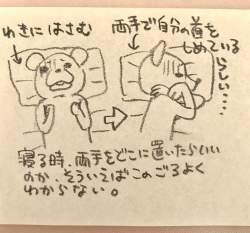 わきに はさむ
両手で自分の首を
しめている
らしい・・・
寝る時、両手をどこに置いたらいい
のか、そういえばこのごろよく
わからない。